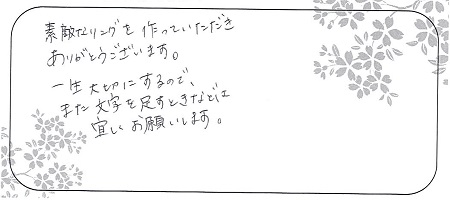 素敵なリングを作っていただき
ありがとうございます。
一生大切にするので、
また文字を足すときなどは
宜しくお願いします。